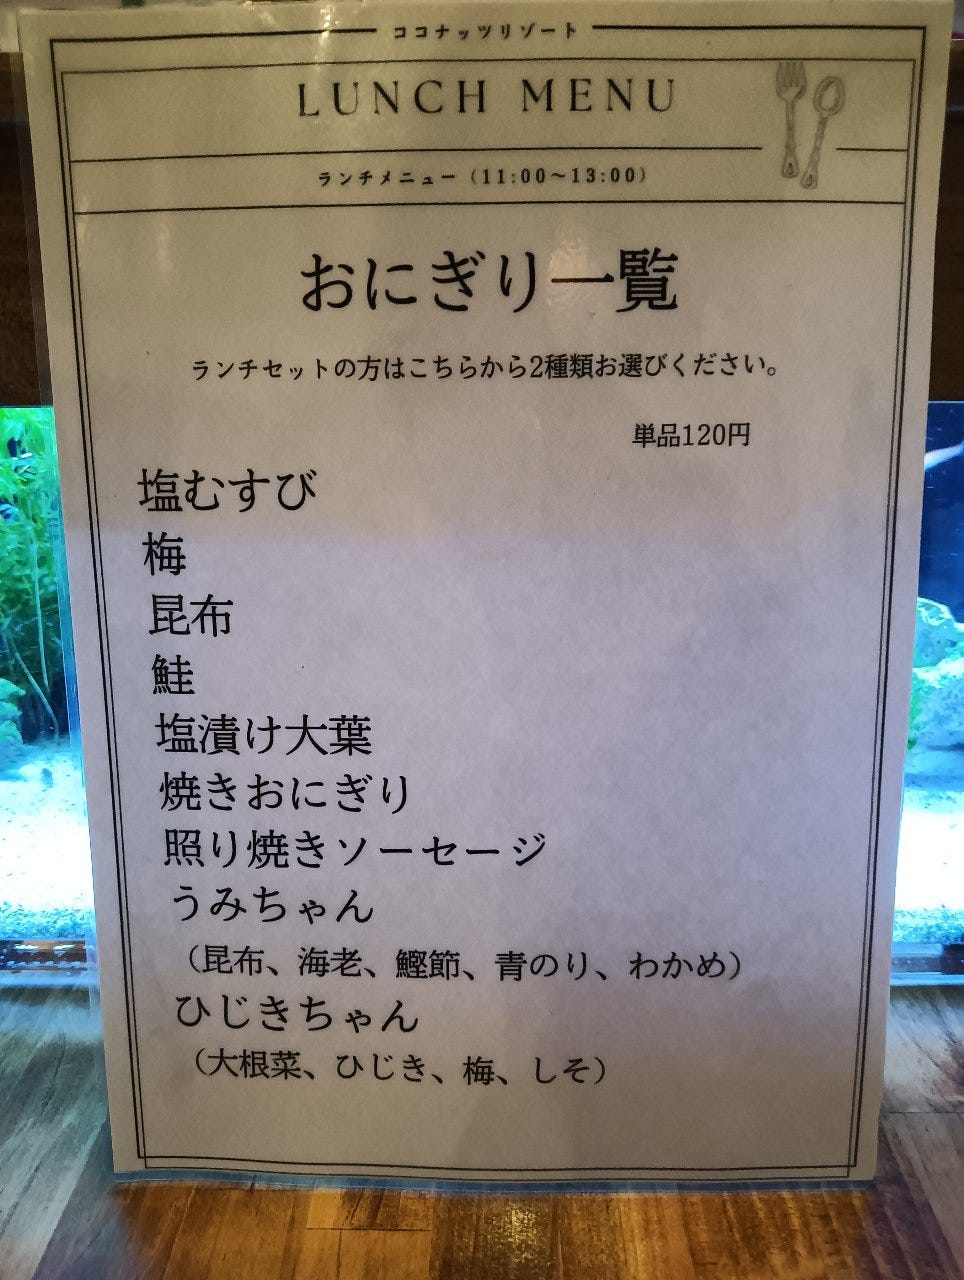 ココナッツリゾート
LUNCH MENU
ランチメニュー（11:00～13:00）
おにぎり一覧
ランチセットの方はこちらから2種類お選びください。
単品120円
塩むすび
梅
昆布
鮭
塩漬け大葉
焼きおにぎり
照り焼きソーセージ
うみちゃん
（昆布、海老、鰹節、青のり、わかめ）
ひじきちゃん
（大根菜、ひじき、梅、しそ）